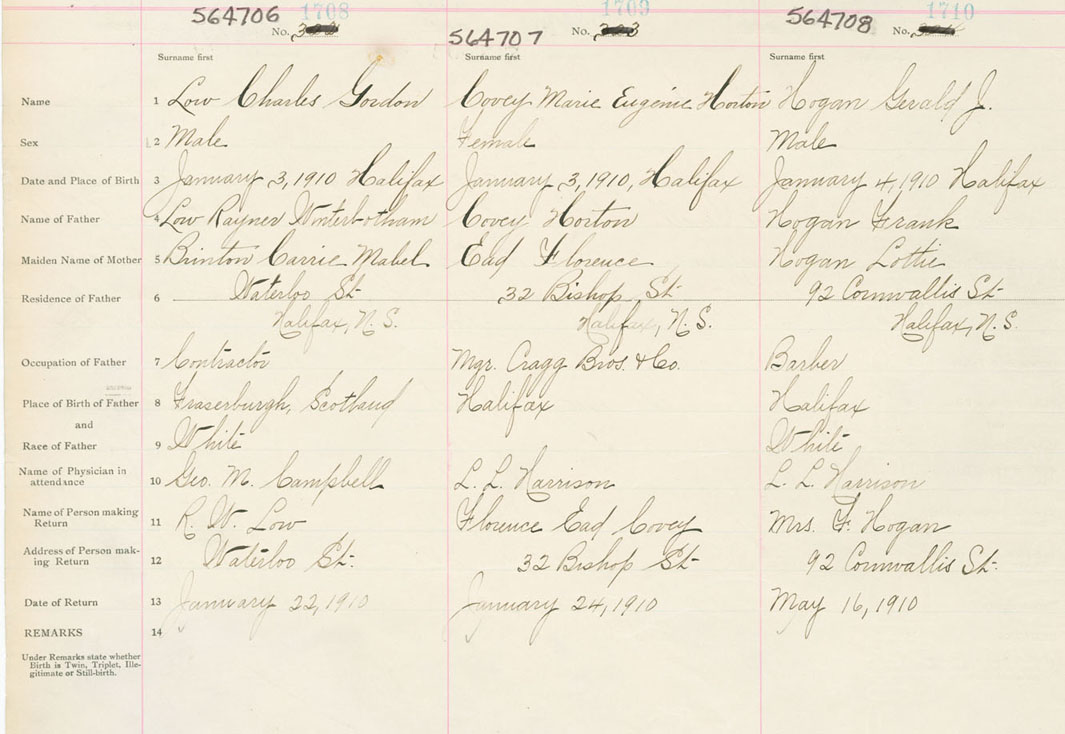 564706 1708 564707 1709 564708 1710
No. No. No.
Surname first Surname first Surname first
Name 1 Low Charles Gordon Covey Marie Eugenie Horton Hogan Gerald J.
Sex 2 Male Female Male
Date and Place of Birth 3 January 3, 1910 Halifax January 3, 1910, Halifax January 4, 1910 Halifax
Name of Father 4 Low Rayner Winterbotham Covey Horton Hogan Frank
Maiden Name of Mother 5 Brinton Carrie Mabel Ead Florence Hogan Lottie
Residence of Father 6 Waterloo St. 32 Bishop St. 92 Cornwallis St.
Halifax, N.S. Halifax, N.S. Halifax, N.S.
Occupation of Father 7 Contractor Mgr. Cragg Bros. & Co. Barber
Place of Birth of Father 8 Fraserburgh, Scotland Halifax Halifax
and
Race of Father 9 White White
Name of Physician in
attendance 10 Geo. M. Campbell L. L. Harrison L. L. Harrison
Name of Person making
Return 11 R. W. Low Florence Ead Covey Mrs. F. Hogan
Address of Person mak-
ing Return 12 Waterloo St. 32 Bishop St. 92 Cornwallis St.
Date of Return 13 January 22, 1910 January 24, 1910 May 16, 1910
REMARKS 14
Under Remarks state whether
Birth is Twin, Triplet, Ille-
gitimate or Still-birth.